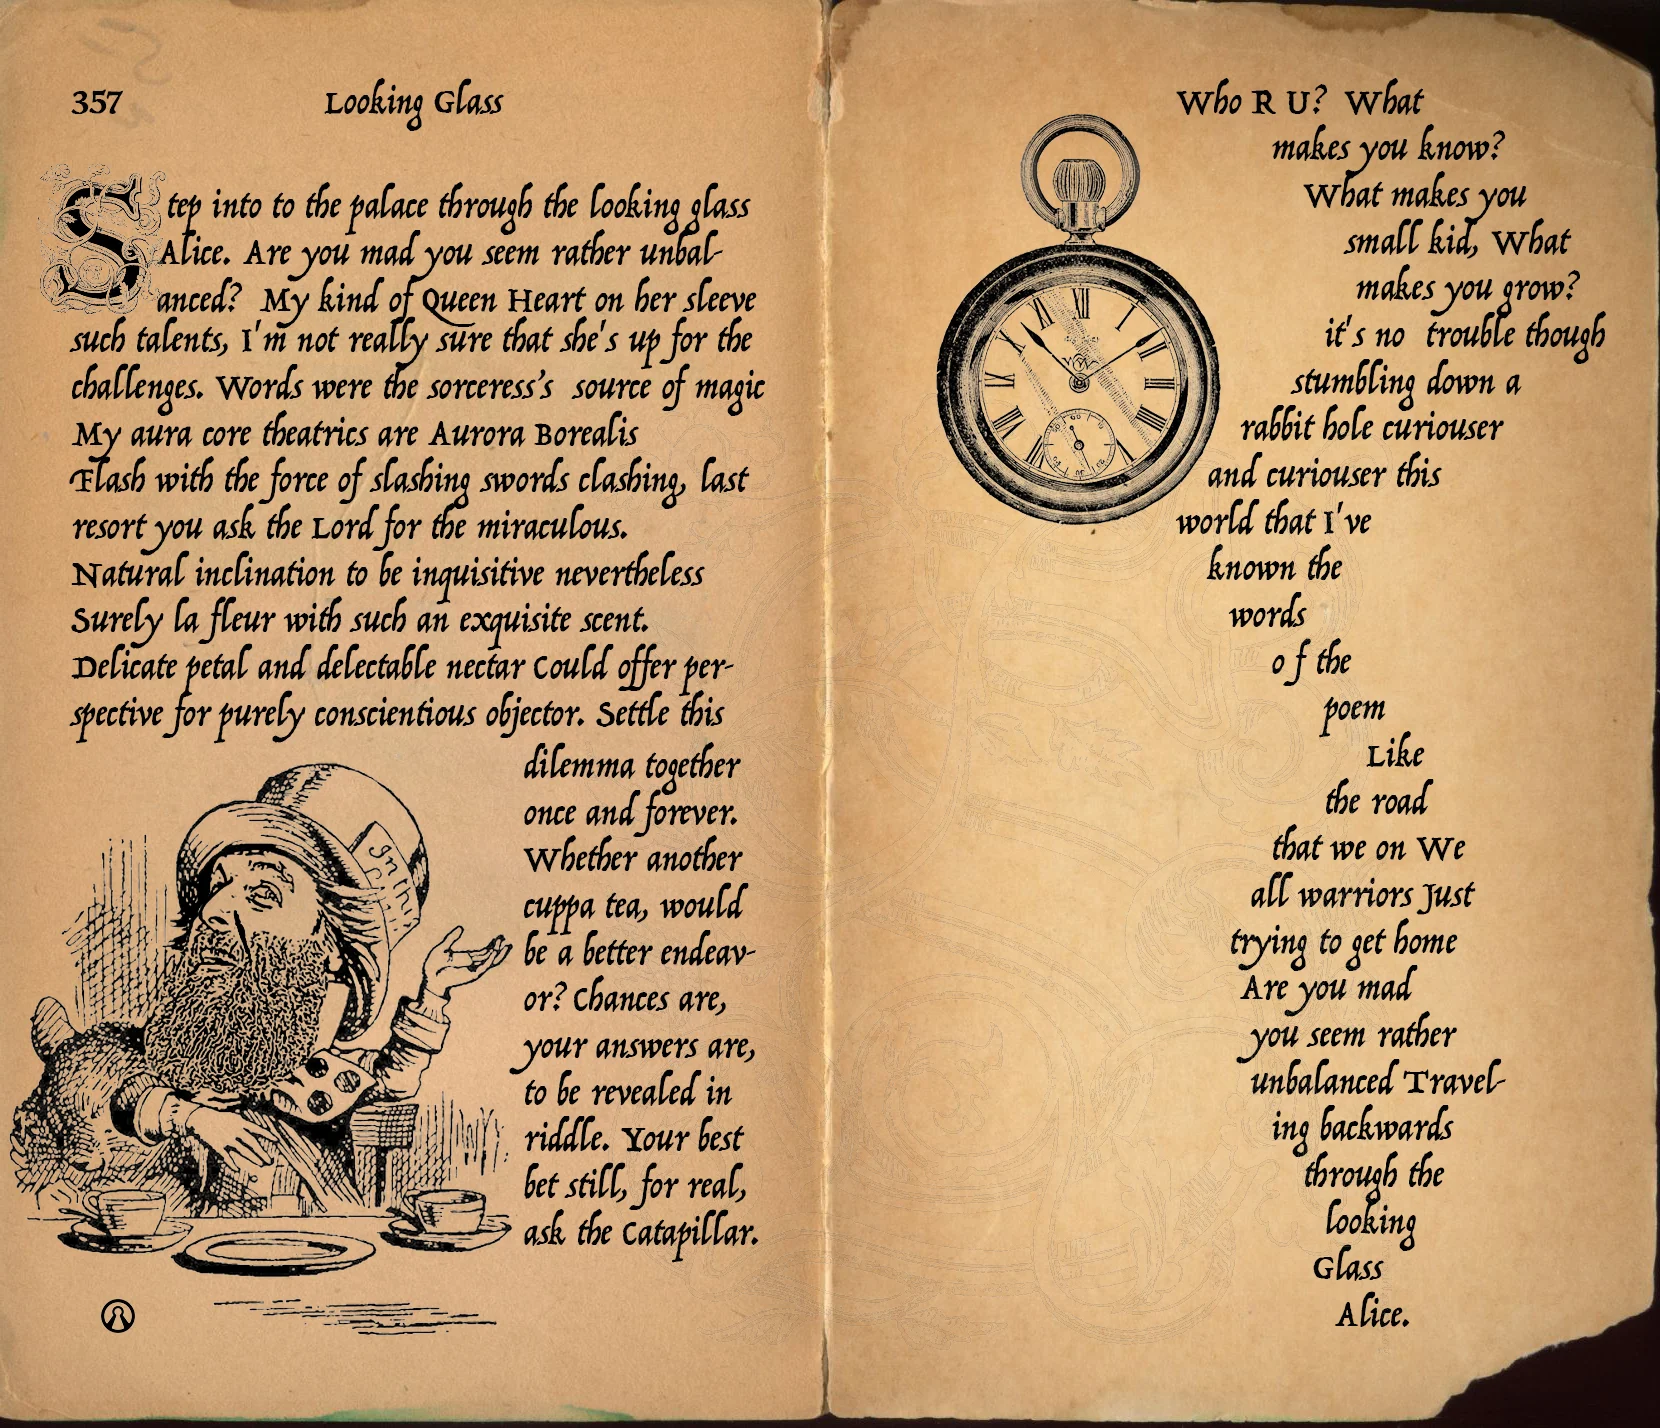 357
Looking Glass
Step into to the palace through the looking glass
Alice. Are you mad you seem rather unbal-
anced? My kind of Queen Heart on her sleeve
such talents, I'm not really sure that she's up for the
challenges. Words were the sorceress's source of magic
My aura core theatrics are Aurora Borealis
Flash with the force of slashing swords clashing, last
resort you ask the Lord for the miraculous.
Natural inclination to be inquisitive nevertheless
Surely la fleur with such an exquisite scent.
Delicate petal and delectable nectar Could offer per-
spective for purely conscientious objector. Settle this
dilemma together
once and forever.
Whether another
cuppa tea, would
be a better endeav-
or? Chances are,
your answers are,
to be revealed in
riddle. Your best
bet still, for real,
ask the Catapillar.
In thi
Who R U? What
makes you know?
What makes you
small kid, What
makes you grow?
it's no trouble though
stumbling down a
rabbit hole curiouser
and curiouser this
world that I've
known the
words
o f the
poem
Like
the road
that we on We
all warriors Just
trying to get home
Are you mad
you seem rather
unbalanced Travel-
ing backwards
through the
looking
Glass
Alice.